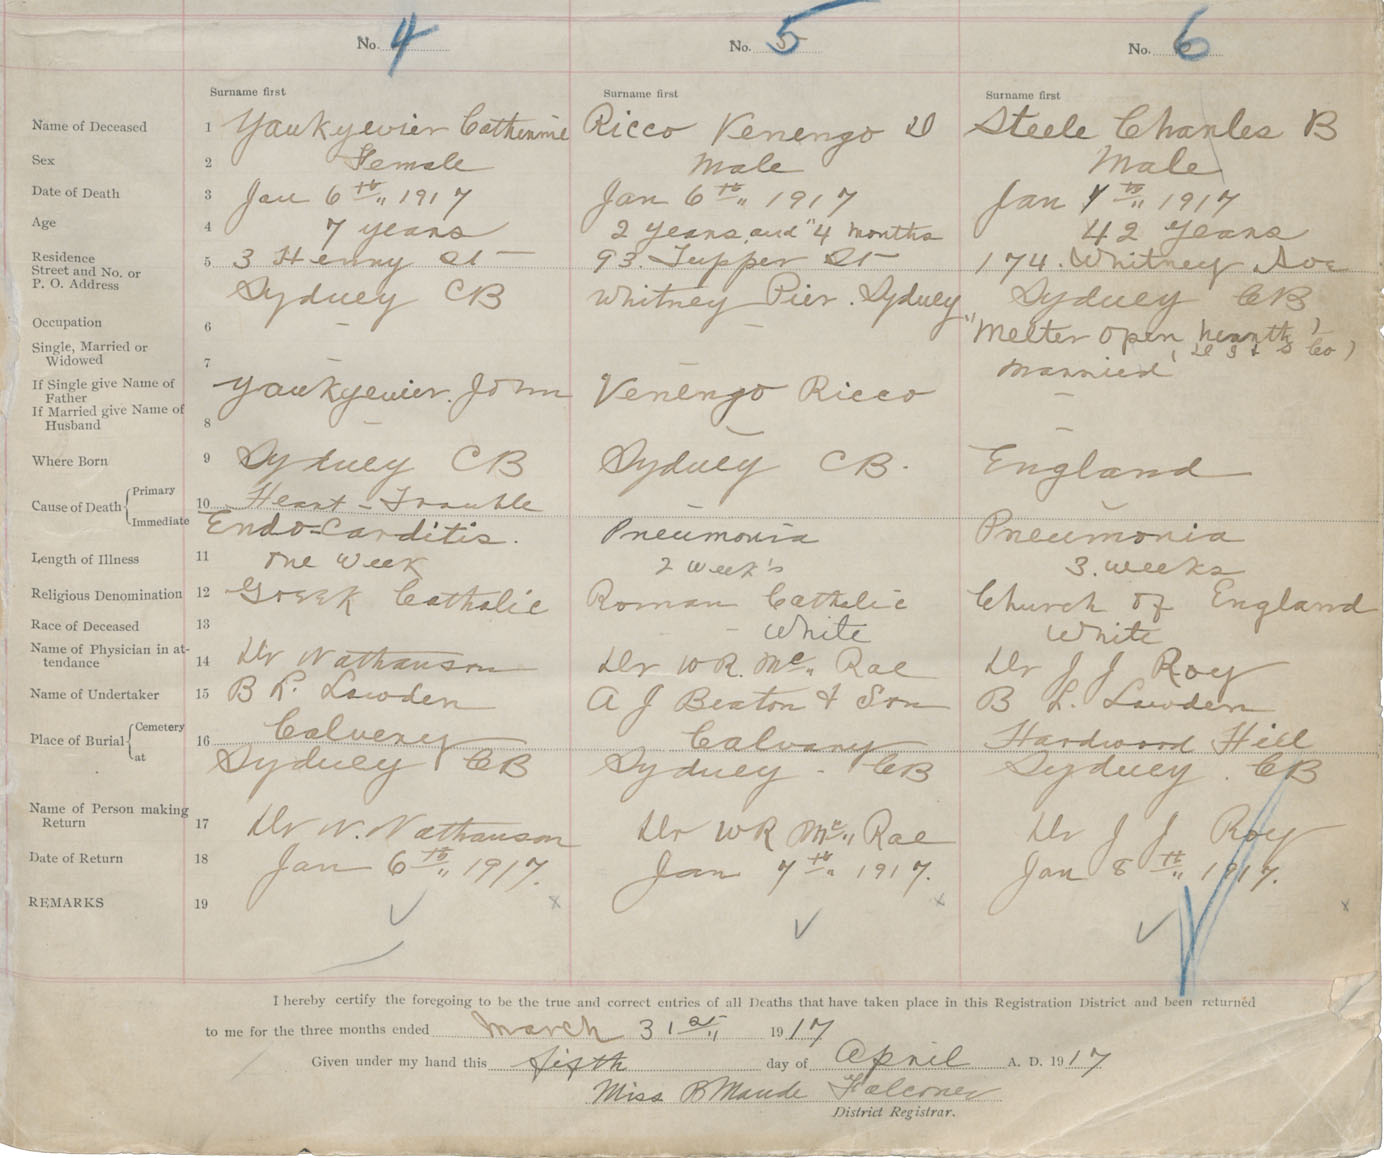 No. 4 No. 5 No. 6
Surname first Surname first Surname first
Name of Deceased 1 Yaukyevier Catherine Ricco Venengo D Steele Charles B
Sex 2 Female Male Male
Date of Death 3 Jan 6th 1917 Jan 6th 1917 Jan 7th 1917
Age 4 7 years 2 years and 4 months 42 years
Residence
Street and No. or 5 3 Henry St 93. Tupper St 174. Whitney Ave
P. O. Address Sydney CB Whitney Pier. Sydney Sydney CB
Occupation 6 — — "Melter open hearth)
Single, Married or (D I & S Co)
Widowed 7 — — Married
If Single give Name of
Father Yaukyevier. John Venengo Ricco —
If Married give Name of
Husband 8 — — —
Where Born 9 Sydney CB Sydney CB. England
Cause of Death Primary 10 Heart - Trouble — —
Immediate Endo-Carditis. Pneumonia Pneumonia
Length of Illness 11 one week 2 week's 3. weeks
Religious Denomination 12 Greek Catholic Roman Catholic Church of England
Race of Deceased 13 - White White
Name of Physician in at-
tendance 14 Dr Nathanson Dr W R. Mc Rae Dr J J Roy
Name of Undertaker 15 B L. Lowden A J Beaton & Son B L. Lowden
Place of Burial Cemetery 16 Calvery Calvary Hardwood Hill
at Sydney CB Sydney. CB Sydney. CB
Name of Person making
Return 17 Dr N. Nathanson Dr W R Mc Rae Dr J J Roy
Date of Return 18 Jan 6th 1917. Jan 7th 1917. Jan 8th 1917.
REMARKS 19
I hereby certify the foregoing to be the true and correct entries of all Deaths that have taken place in this Registration District and been returned
to me for the three months ended March 31st 1917
Given under my hand this fifth day of April A. D. 1917
Miss B Maude Falconer
District Registrar.